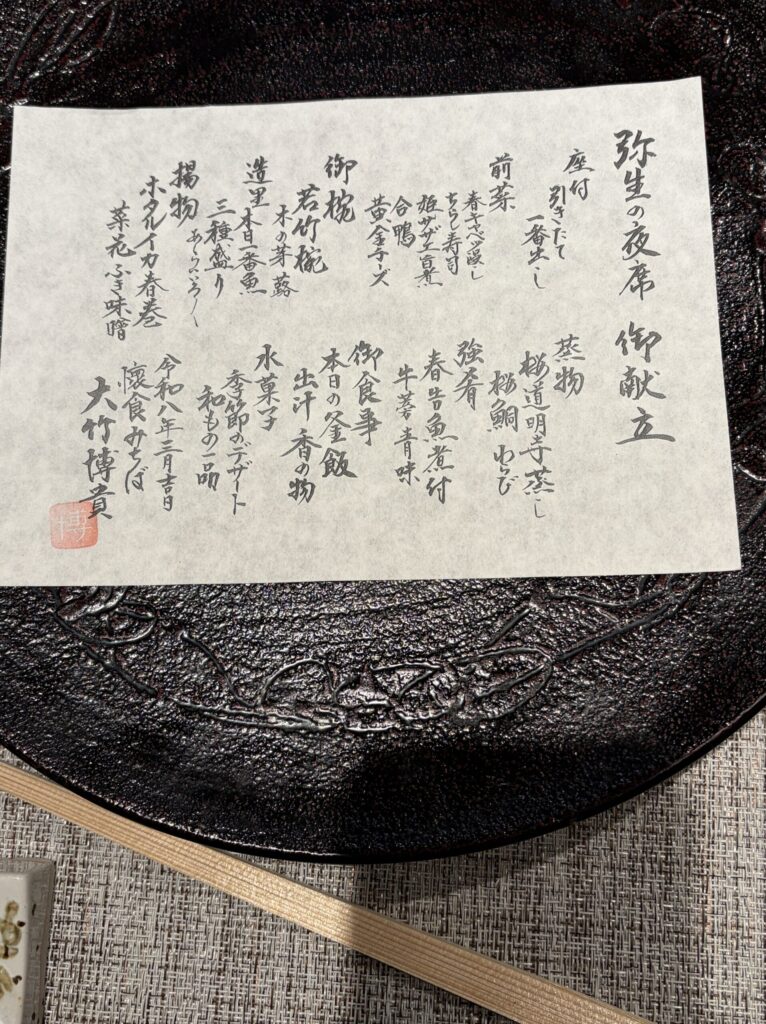 弥生の夜席 御献立
座付
引きたて
一番出し
前菜
春キャベツ浸し
ちらし寿司
姫サザエ旨煮
合鴨
黄金チーズ
御椀
若竹椀
木の芽 蕗
造里
本日一番魚
三種盛り
あしらい
揚物
ホタルイカ春巻
菜花 ふき味噌
蒸物
桜道明寺蒸し
桜鯛 わらび
強肴
春告魚煮付
牛蒡 青味
御食事
本日の釜飯
出汁 香の物
水菓子
季節のデザート
和もの一品
令和八年三月吉日
懐食みちば
大竹博貴
博